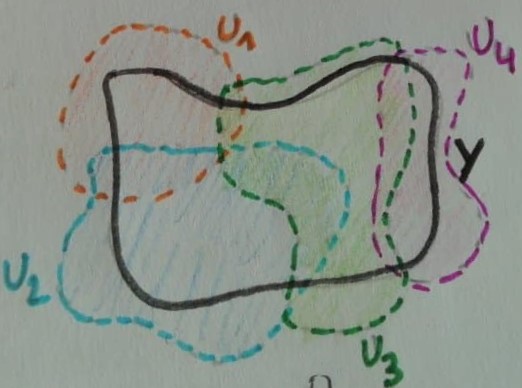 U1
U4
Y
U2
U3